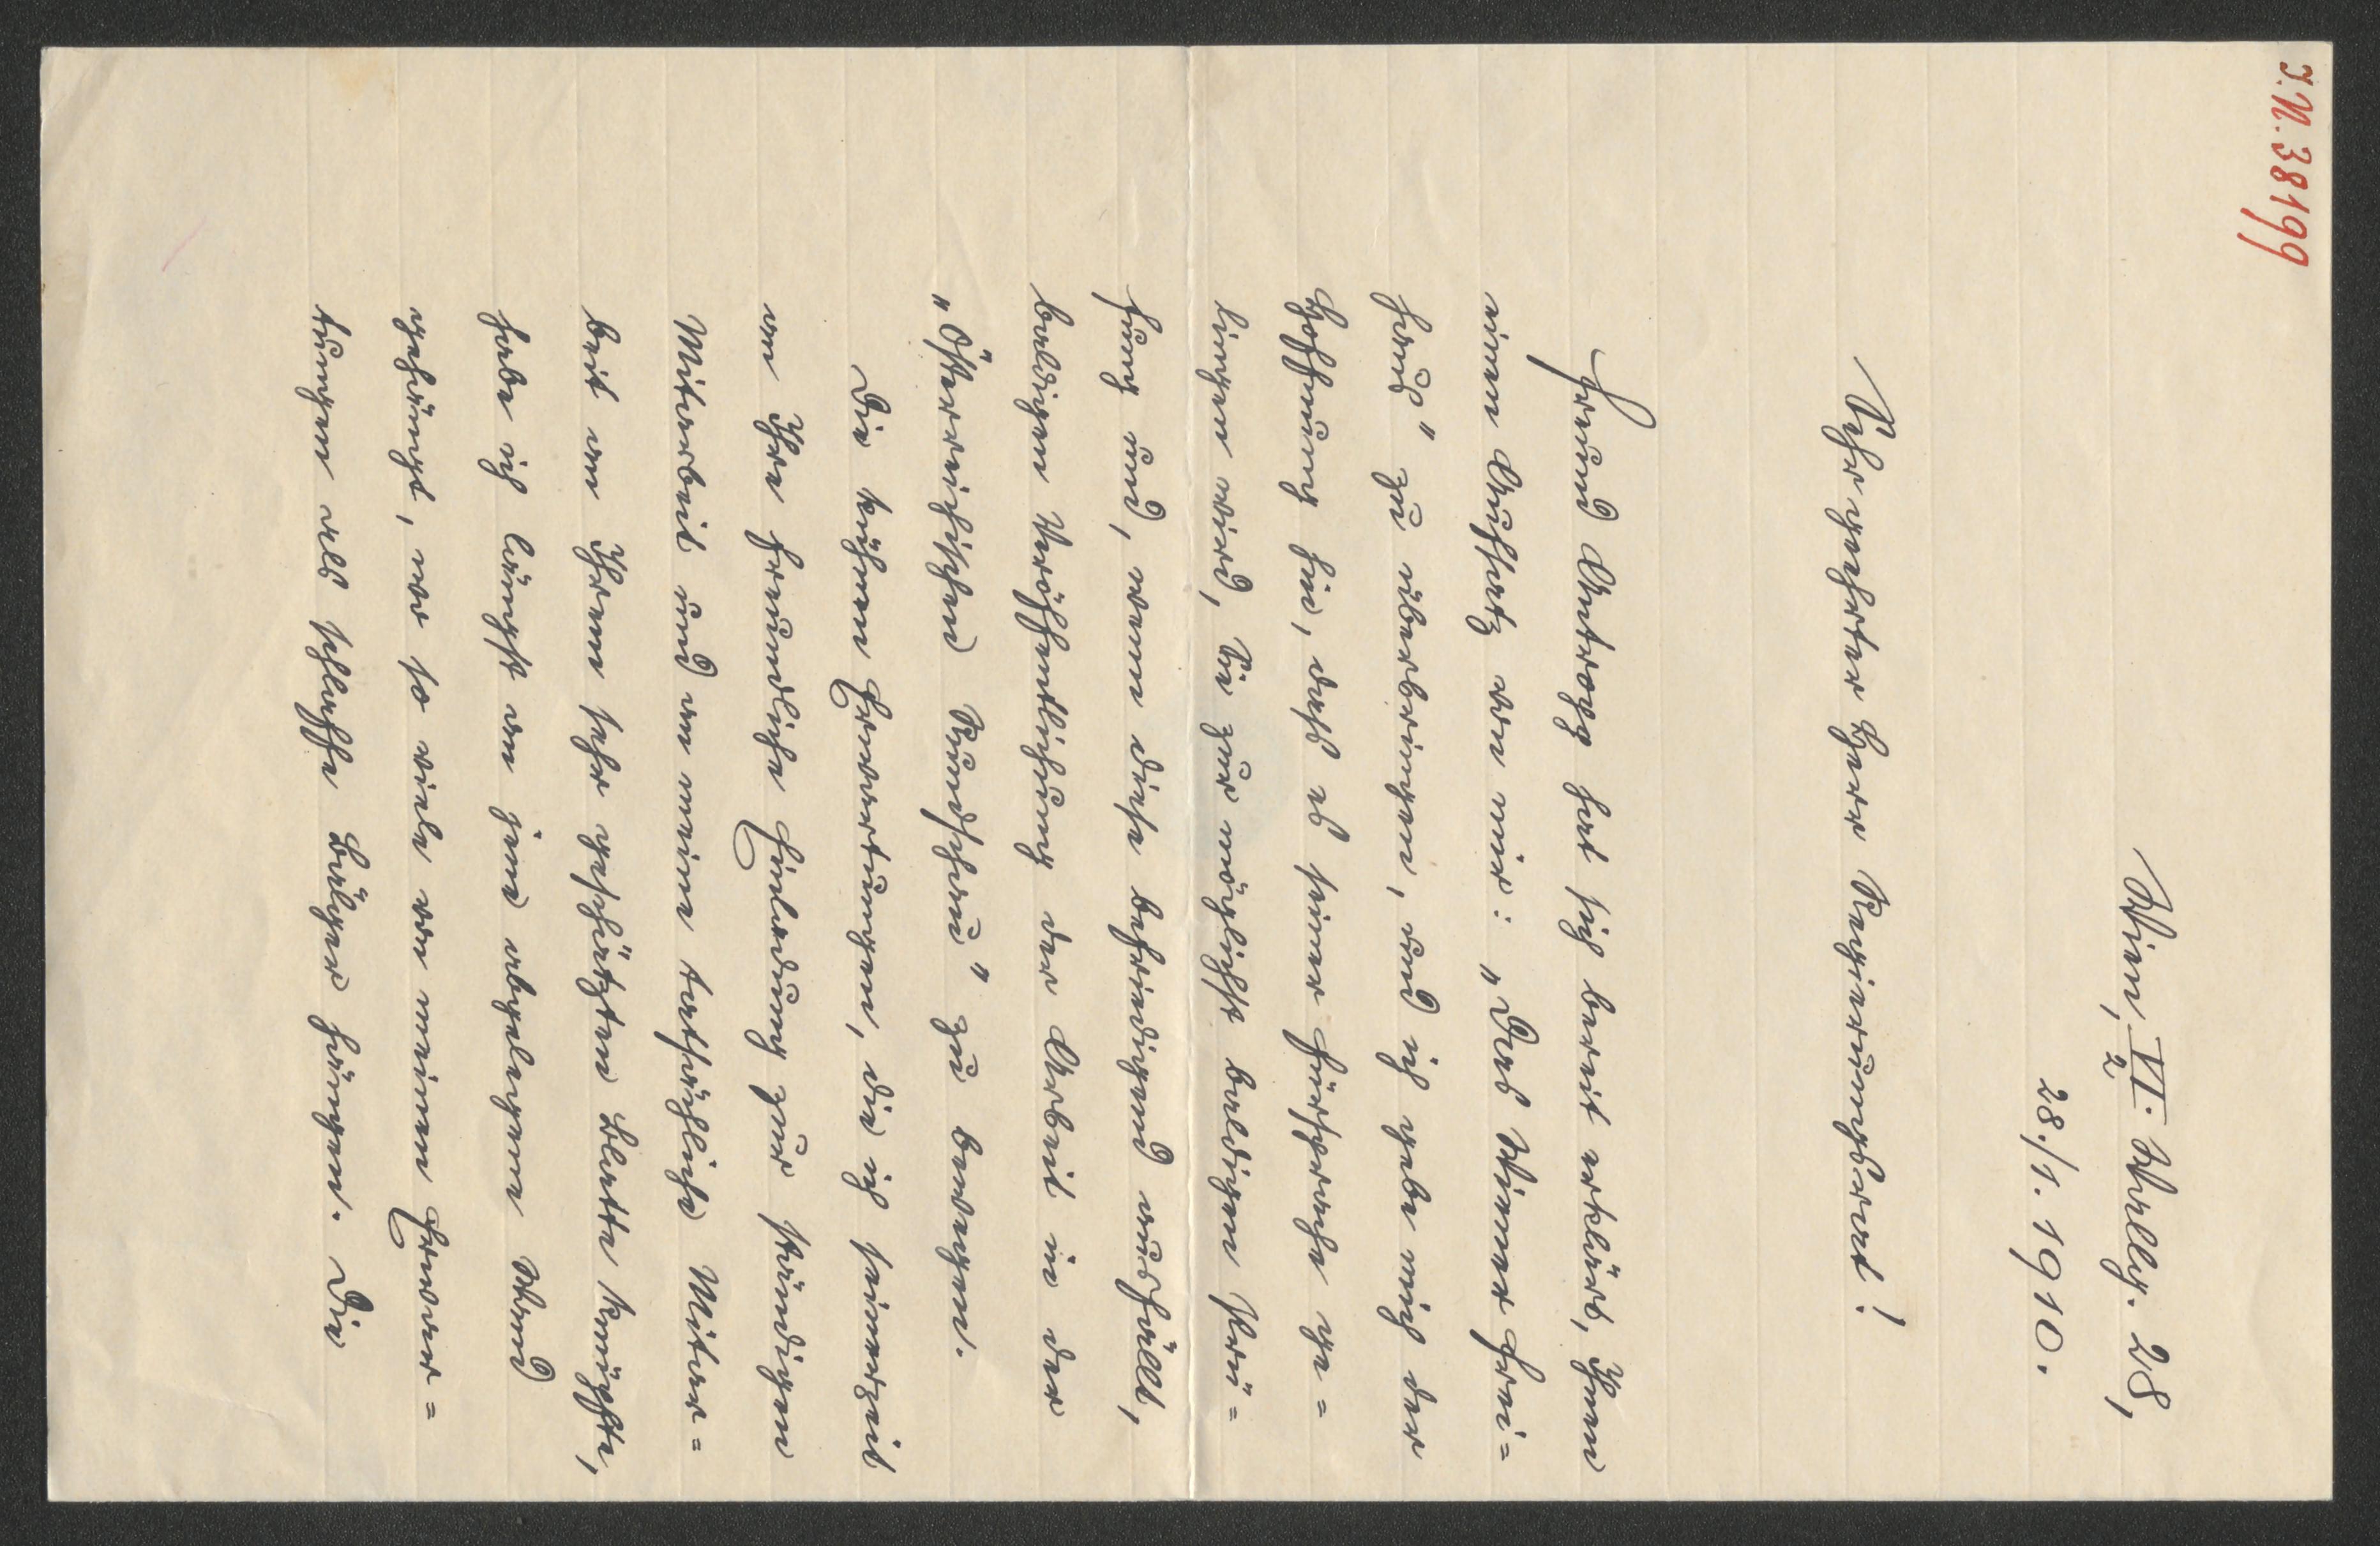 J.N. 38199
Wien, VI/2. Wallg. 28,
28./1. 1910.
Sehr geehrter Herr Regierungsrat!
Freund Antropp hat sich bereit erklärt, Ihnen
einen Aufsatz von mir: „Das Wiener Frei=
haus" zu überbringen, und ich gebe mich der
Hoffnung hin, daß es seiner Fürsprache ge=
lingen wird, Sie zur möglichst baldigen Prü=
fung und, wenn diese befriedigend ausfällt,
baldigen Veröffentlichung der Arbeit in der
„Österreichischen Rundschau" zu bewegen.
Die kühnen Erwartungen, die ich seinerzeit
an Ihre freundliche Einladung zur ständigen
Mitarbeit und an meine tatsächliche Mitar=
beit an Ihrem sehr geschätzten Blatte knüpfte,
habe ich längst an jene abgelegene Wand
gehängt, wo so viele von meinen Erwar=
tungen als schlaffe Bälge hängen. Die